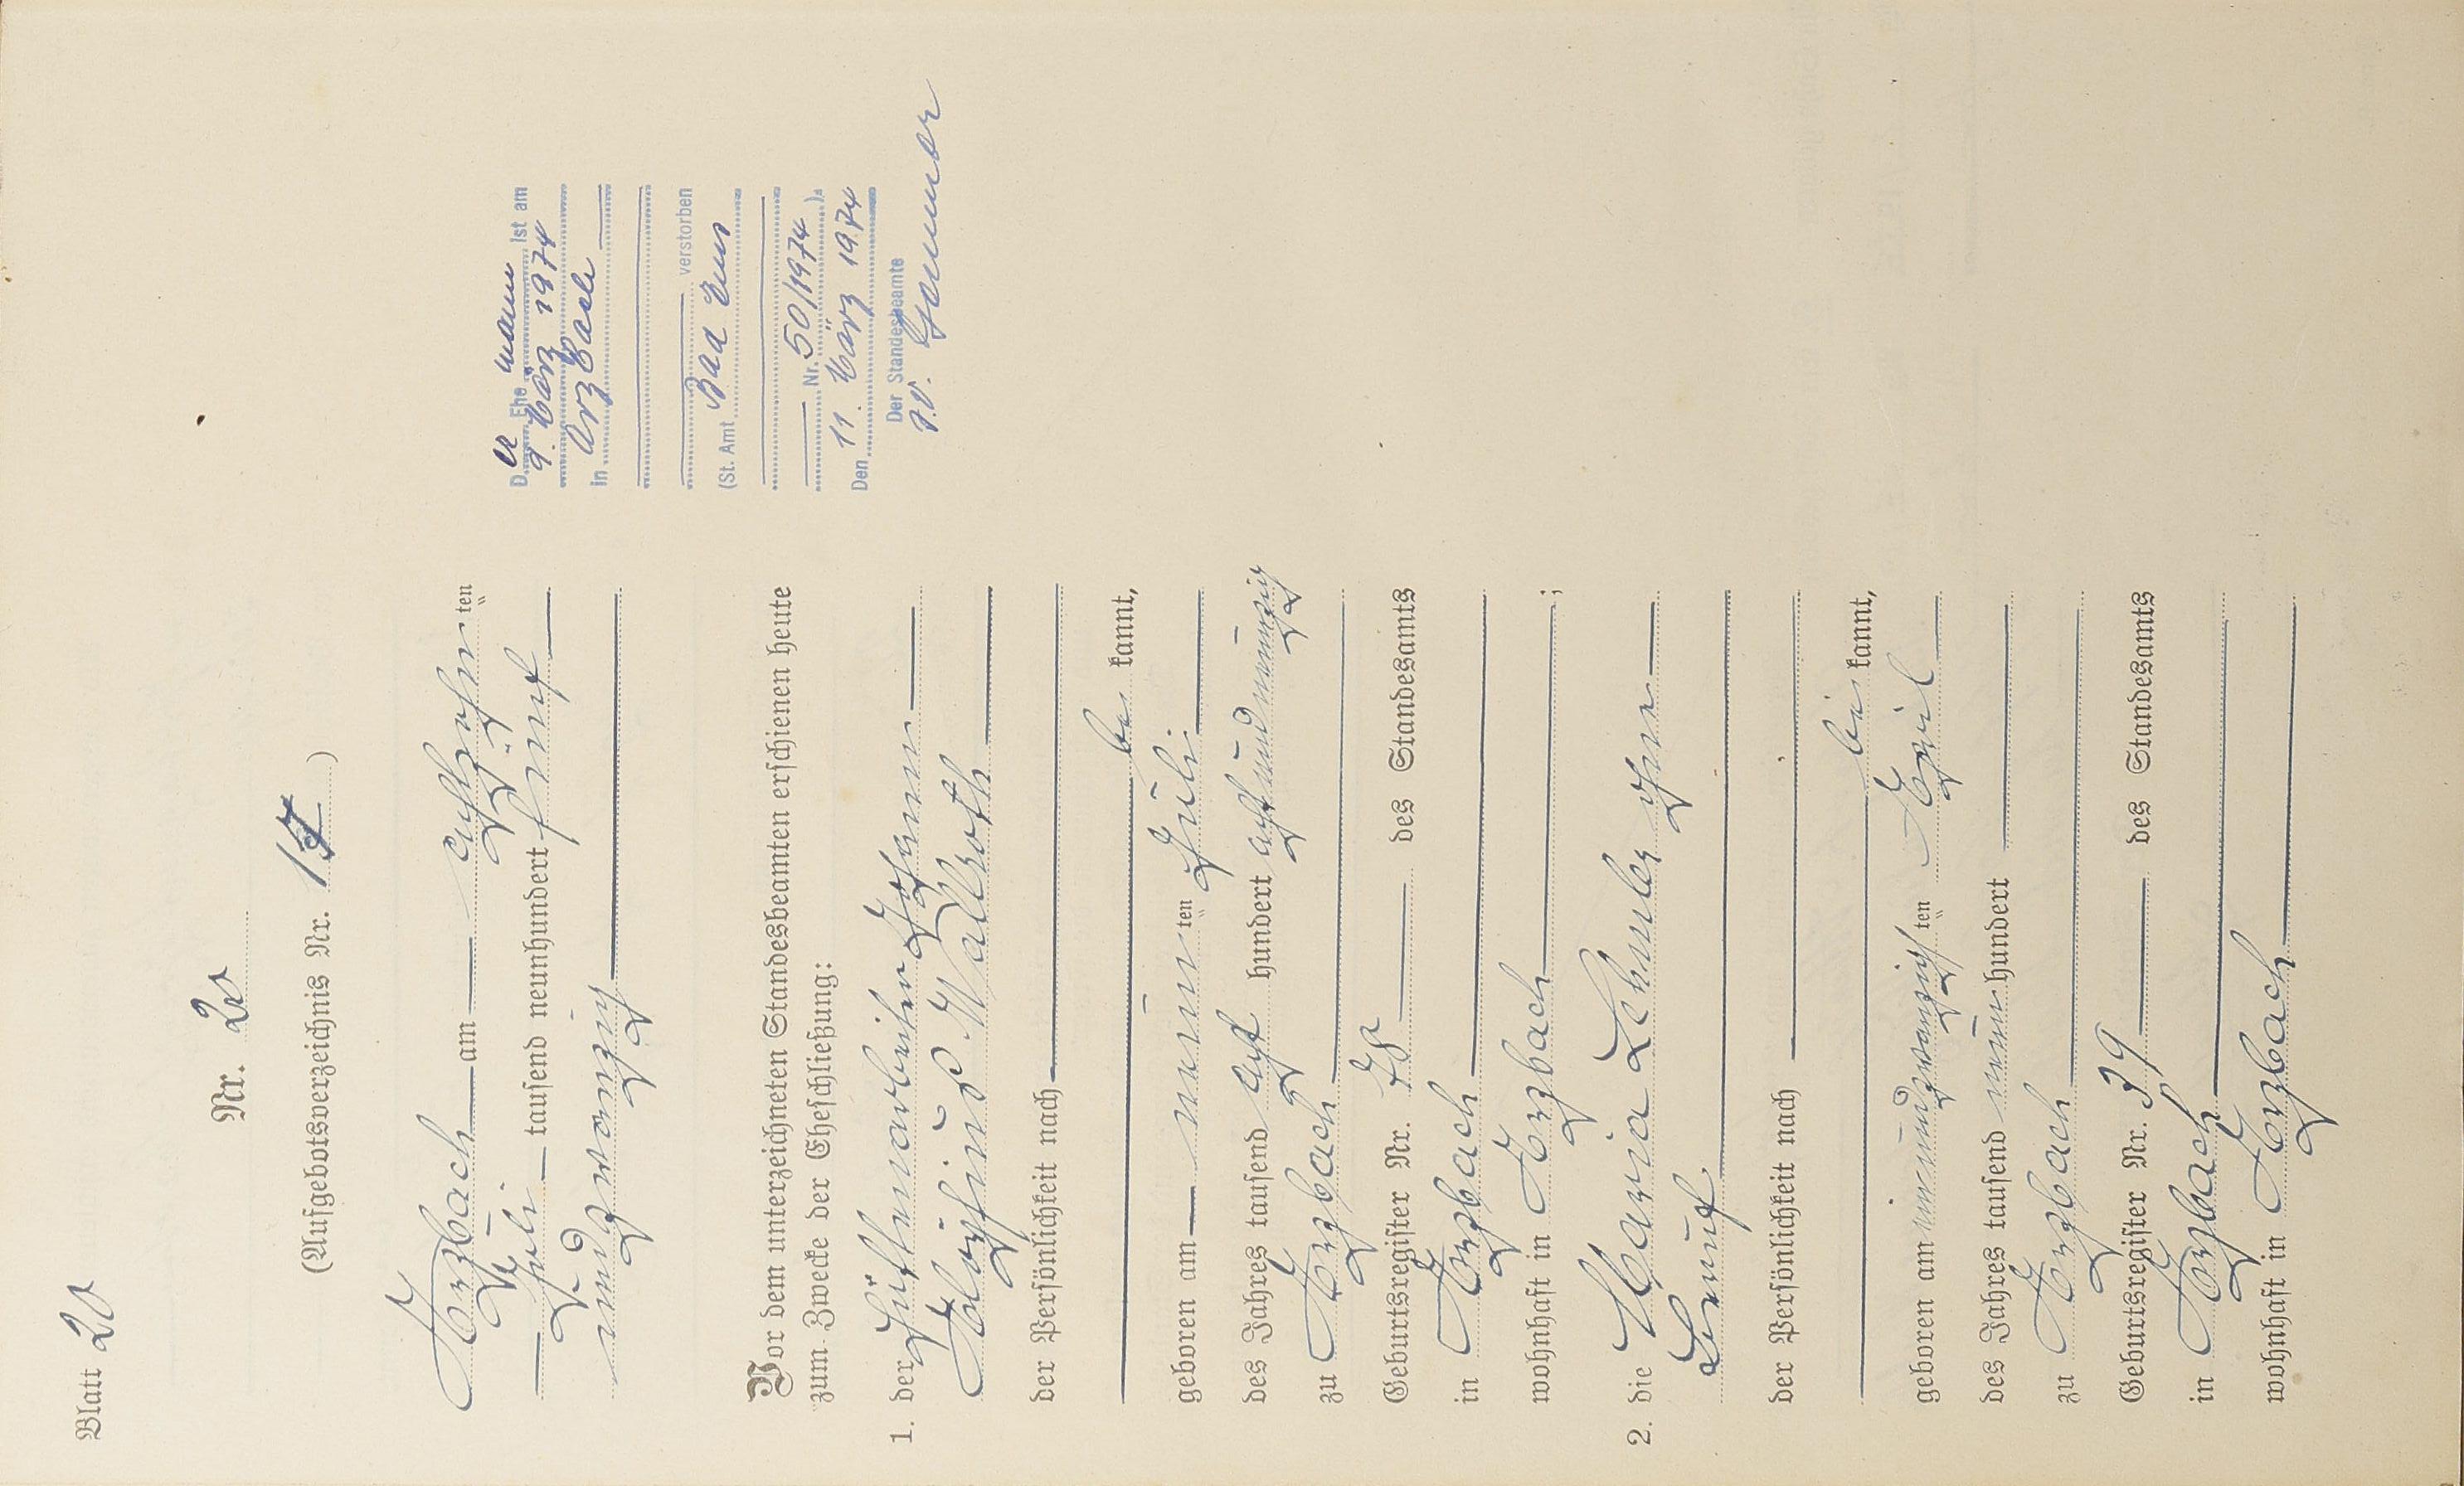 Blatt 20
Nr. 20
(Aufgebotsverzeichnis Nr. 17)
Arzbach am achtzehn ten
Juli tausend neunhundert fünf
undzwanzig
Vor dem unterzeichneten Standesbeamten erschienen heute
zum Zwecke der Eheschließung:
1. der Hüttenarbeiter Johann
Aloysius Wallroth
der Persönlichkeit nach
be kannt,
geboren am neun ten Juli
des Jahres tausend acht hundert achtundneunzig
zu Arzbach
Geburtsregister Nr. 78 des Standesamts
in Arzbach
wohnhaft in Arzbach ;
2. die Maria ohne
Beruf
der Persönlichkeit nach
be kannt,
geboren am einundzwanzig ten April
des Jahres tausend neun hundert
zu Arzbach
Geburtsregister Nr. 39 des Standesamts
in Arzbach
wohnhaft in Arzbach
Der Ehemann ist am
9. März 1974
in Arzbach
verstorben
(St. Amt Bad Ems
Nr. 50/1974 ).
Den 11. März 1974
Der Standesbeamte
I.V.